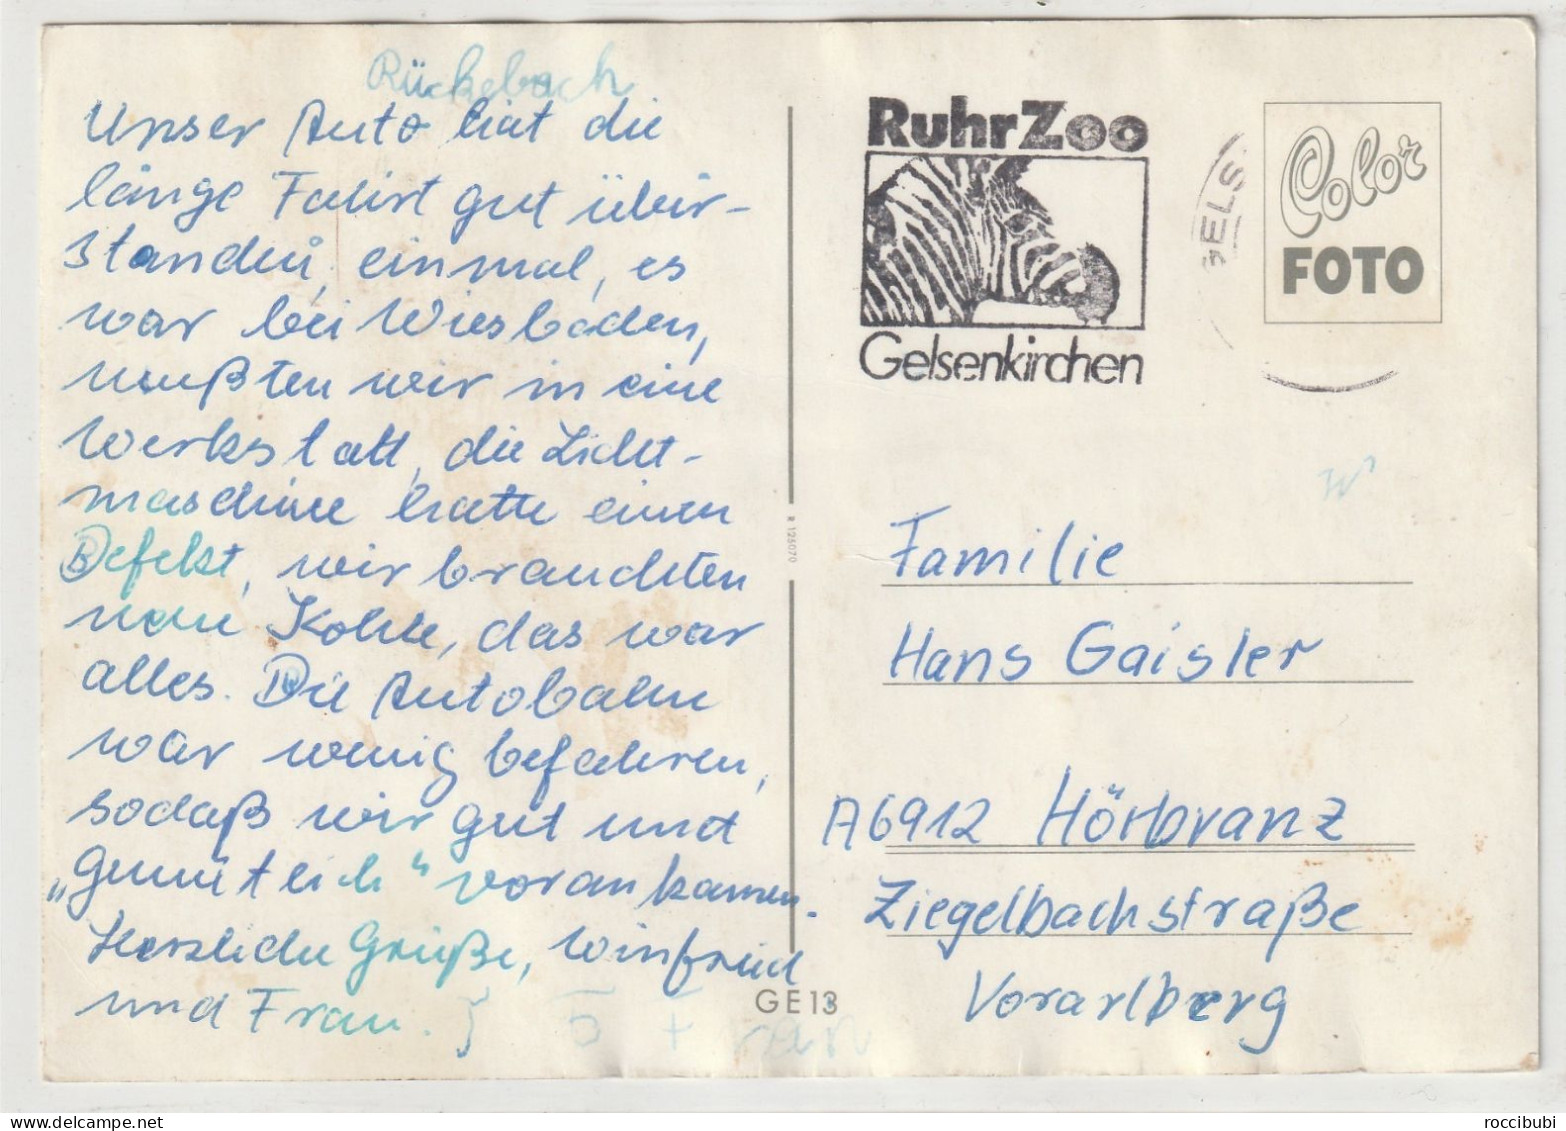 Rückebach
Unser Auto hat die
lange Fahrt gut über-
standen, einmal, es
war bei Wiesbaden,
mußten wir in eine
Werkstatt, die Licht-
maschine hatte einen
Defekt, wir brauchten
neue Kohle, das war
alles. Die Autobahn
war wenig befahren,
sodaß wir gut und
„gemütlich“ vorankamen.
Herzliche Grüße, Winfried
und Frau.
RuhrZoo
Gelsenkirchen
GELS
Color
FOTO
R 125070
Familie
Hans Gaisler
A6912 Hörbranz
Ziegelbachstraße
Vorarlberg
GE13
roccibubi